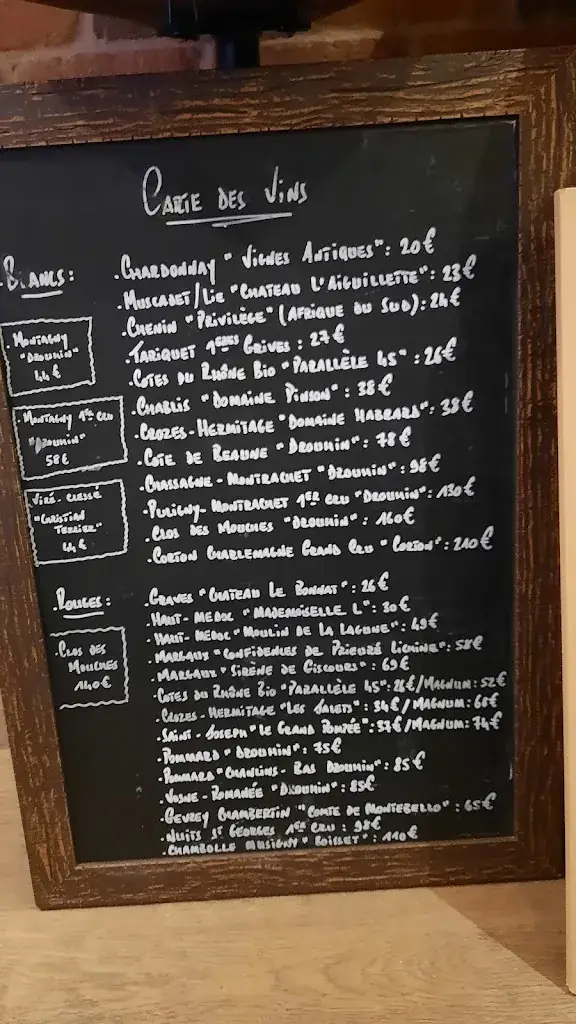 CARTE DES VINS
BLANCS :
MONTAGNY
"DROUHIN"
44€
MONTAGNY 1er CRU
"DROUHIN"
58€
VIRÉ-CLESSÉ
"CHRISTIAN
TERRIER"
44€
.CHARDONNAY "VIGNES ANTIQUES": 20€
.MUSCADET/LIE "CHATEAU L'AIGUILLETTE": 23€
.CHENIN "PRIVILÈGE" (AFRIQUE DU SUD): 24€
.TARIQUET 1ères GRIVES : 27€
.COTES DU RHÔNE BIO "PARALLÈLE 45" : 26€
.CHABLIS "DOMAINE PINSON" : 38€
.CROZES-HERMITAGE "DOMAINE HABRARD": 38€
.COTE DE BEAUNE "DROUHIN" : 78€
.CHASSAGNE-MONTRACHET "DROUHIN": 98€
.PULIGNY-MONTRACHET 1ER CRU "DROUHIN": 130€
.CLOS DES MOUCHES "DROUHIN" : 160€
.CORTON CHARLEMAGNE GRAND CRU "CORTON": 210€
.ROUGES :
.CLOS DES
MOUCHES
140€
.GRAVES "CHATEAU LE BONNAT" : 26€
.HAUT-MEDOC "MADEMOISELLE L": 30€
.HAUT-MEDOC "MOULIN DE LA LAGUNE": 49€
.MARGAUX "CONFIDENCES DE PRIEURÉ LICHINE": 58€
.MARGAUX "SIRÈNE DE GISCOURS" : 69€
.COTES DU RHÔNE BIO "PARALLÈLE 45": 26€/MAGNUM: 52€
.CROZES-HERMITAGE "LES JALETS" : 34€/MAGNUM: 68€
.SAINT-JOSEPH "LE GRAND POMPÉE": 37€/MAGNUM: 74€
.POMMARD "DROUHIN": 75€
.POMMARD "CHANLINS-BAS DROUHIN": 85€
.VOSNE-ROMANÉE "DROUHIN": 85€
.GEVREY CHAMBERTIN "COMTE DE MONTEBELLO": 65€
.NUITS ST GEORGES 1ER CRU : 98€
.CHAMBOLLE MUSIGNY "BOISSET" : 110€